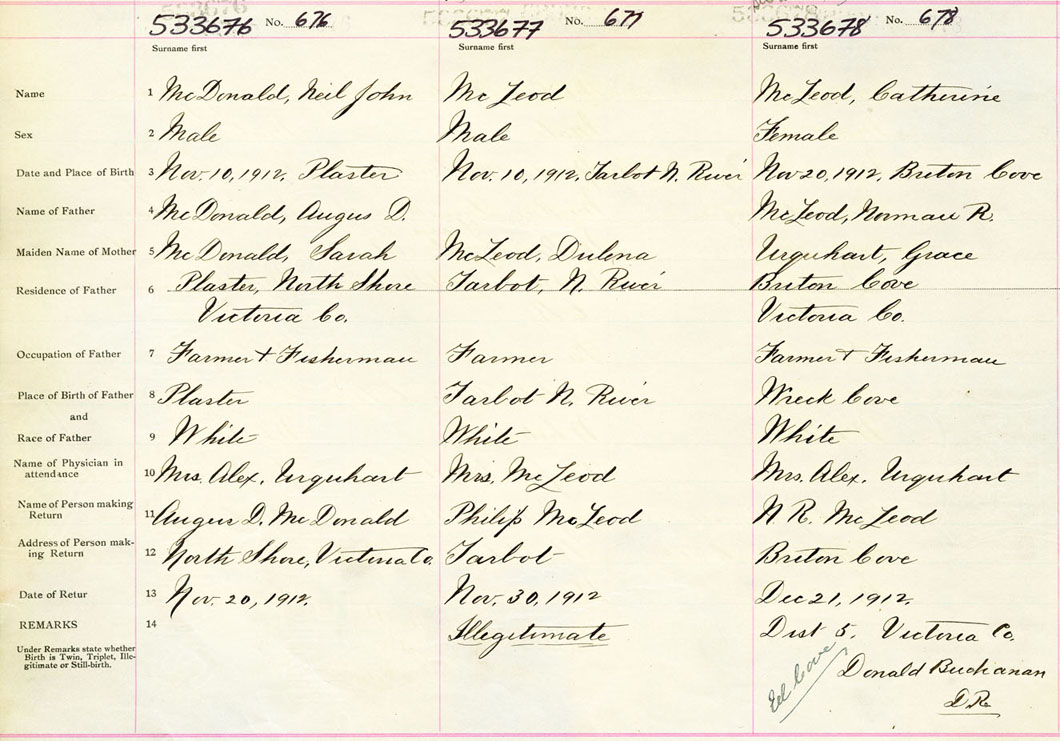 533676 No. 676 533677 No. 677 533678 No. 678
Surname first Surname first Surname first
Name 1 McDonald, Neil John McLeod McLeod, Catherine
Sex 2 Male Male Female
Date and Place of Birth 3 Nov. 10, 1912. Plaster Nov. 10, 1912, Tarbot N. River Nov 20, 1912, Breton Cove
Name of Father 4 McDonald, Angus D. McLeod, Norman R.
Maiden Name of Mother 5 McDonald, Sarah McLeod, Dulena Urquhart, Grace
Residence of Father 6 Plaster, North Shore Tarbot, N. River Breton Cove
Victoria Co. Victoria Co.
Occupation of Father 7 Farmer + Fisherman Farmer Farmer + Fisherman
Place of Birth of Father 8 Plaster Tarbot N. River Wreck Cove
and
Race of Father 9 White White White
Name of Physician in
attendance 10 Mrs. Alex. Urquhart Mrs. McLeod Mrs. Alex. Urquhart
Name of Person making
Return 11 Angus D. McDonald Philip McLeod N R. McLeod
Address of Person mak-
ing Return 12 North Shore, Victoria Co. Tarbot Breton Cove
Date of Retur 13 Nov. 20, 1912. Nov. 30, 1912 Dec 21, 1912.
REMARKS 14 Illegitimate Dist 5. Victoria Co.
Under Remarks state whether
Birth is Twin, Triplet, Ille-
gitimate or Still-birth.
Donald Buchanan
D.R.